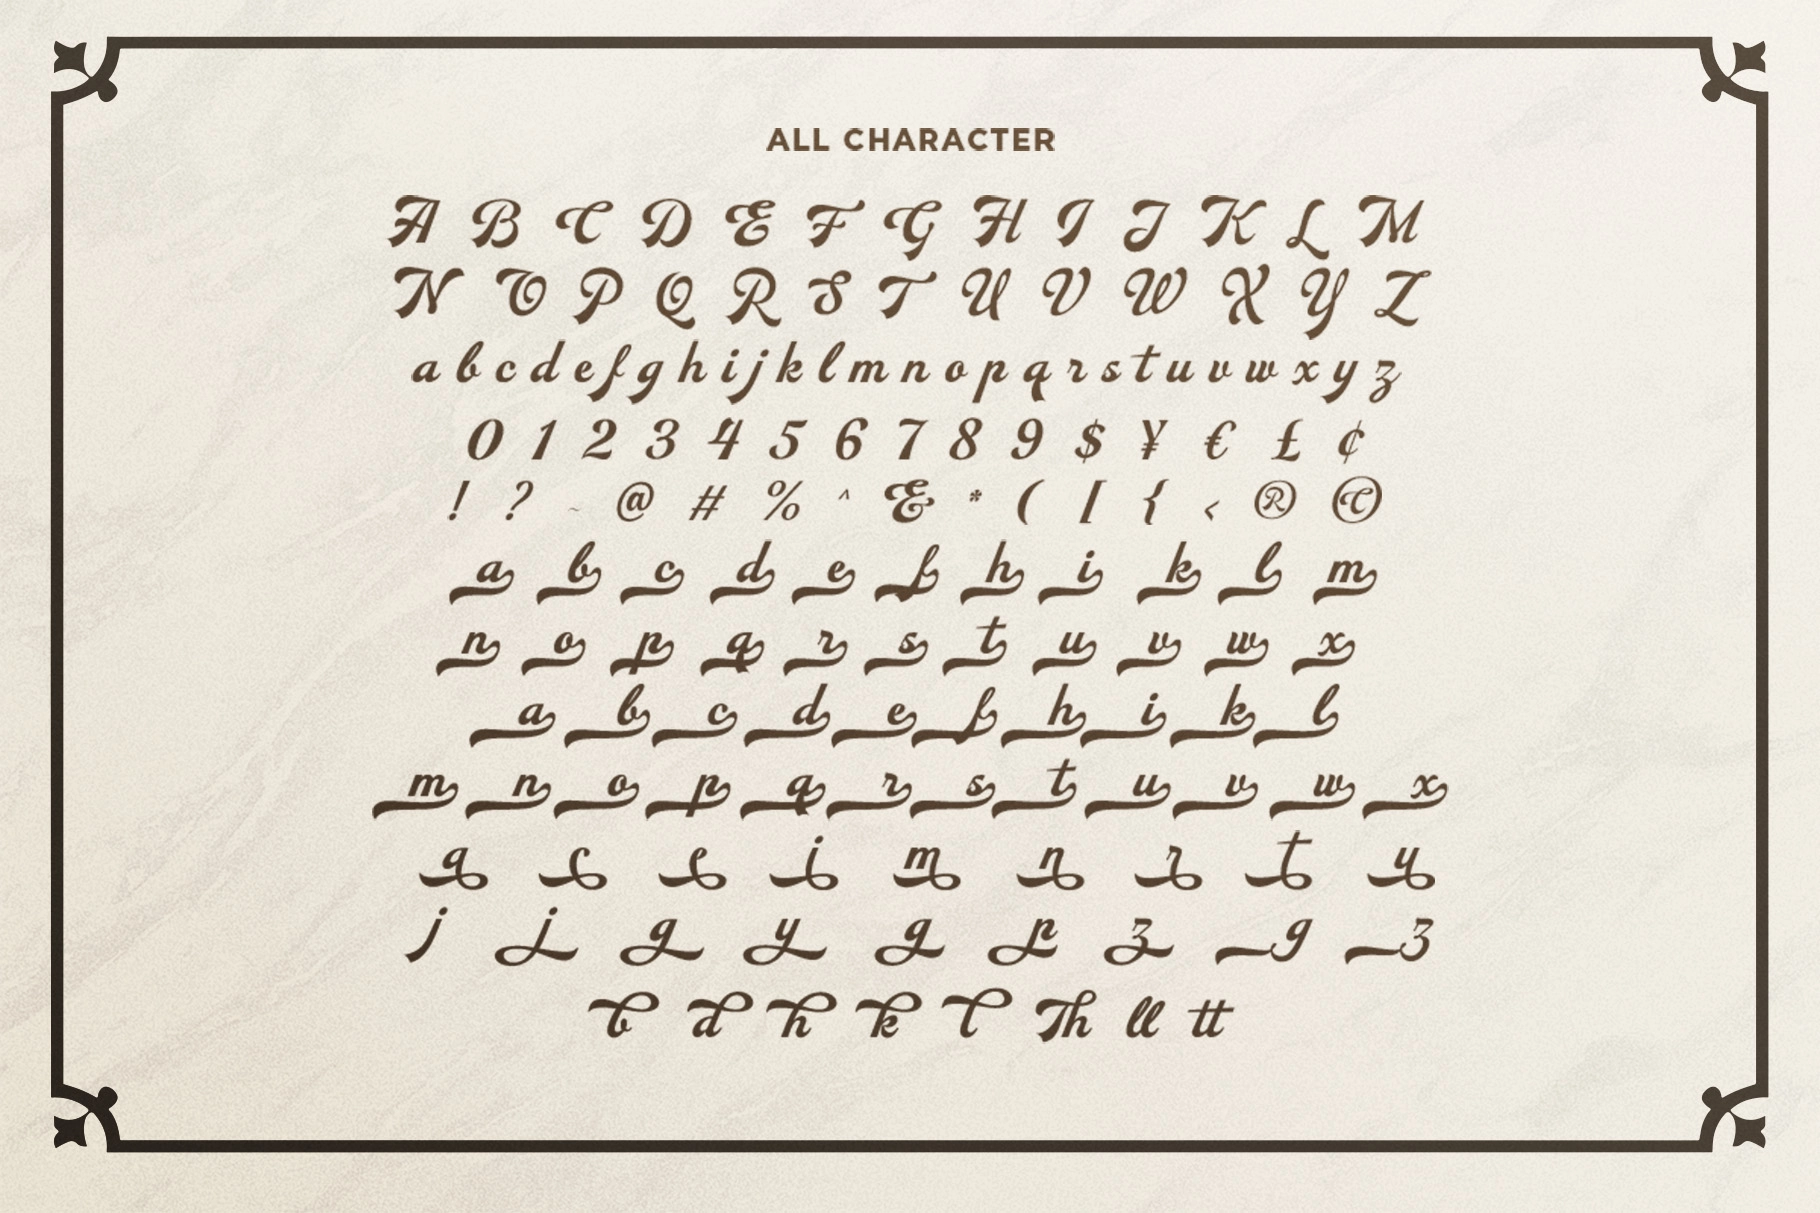 ALL CHARACTER
A B C D E F G H I J K L M
N O P Q R S T U V W X Y Z
a b c d e f g h i j k l m n o p q r s t u v w x y z
0 1 2 3 4 5 6 7 8 9 $ ¥ € £ ¢
! ? ~ @ # % ^ & * ( [ { < ® ©
a b c d e f h i k l m
n o p q r s t u v w x
a b c d e f h i k l
m n o p q r s t u v w x
a c e i m n r t y
j j g y g p z g z
b d h k l Th ll tt